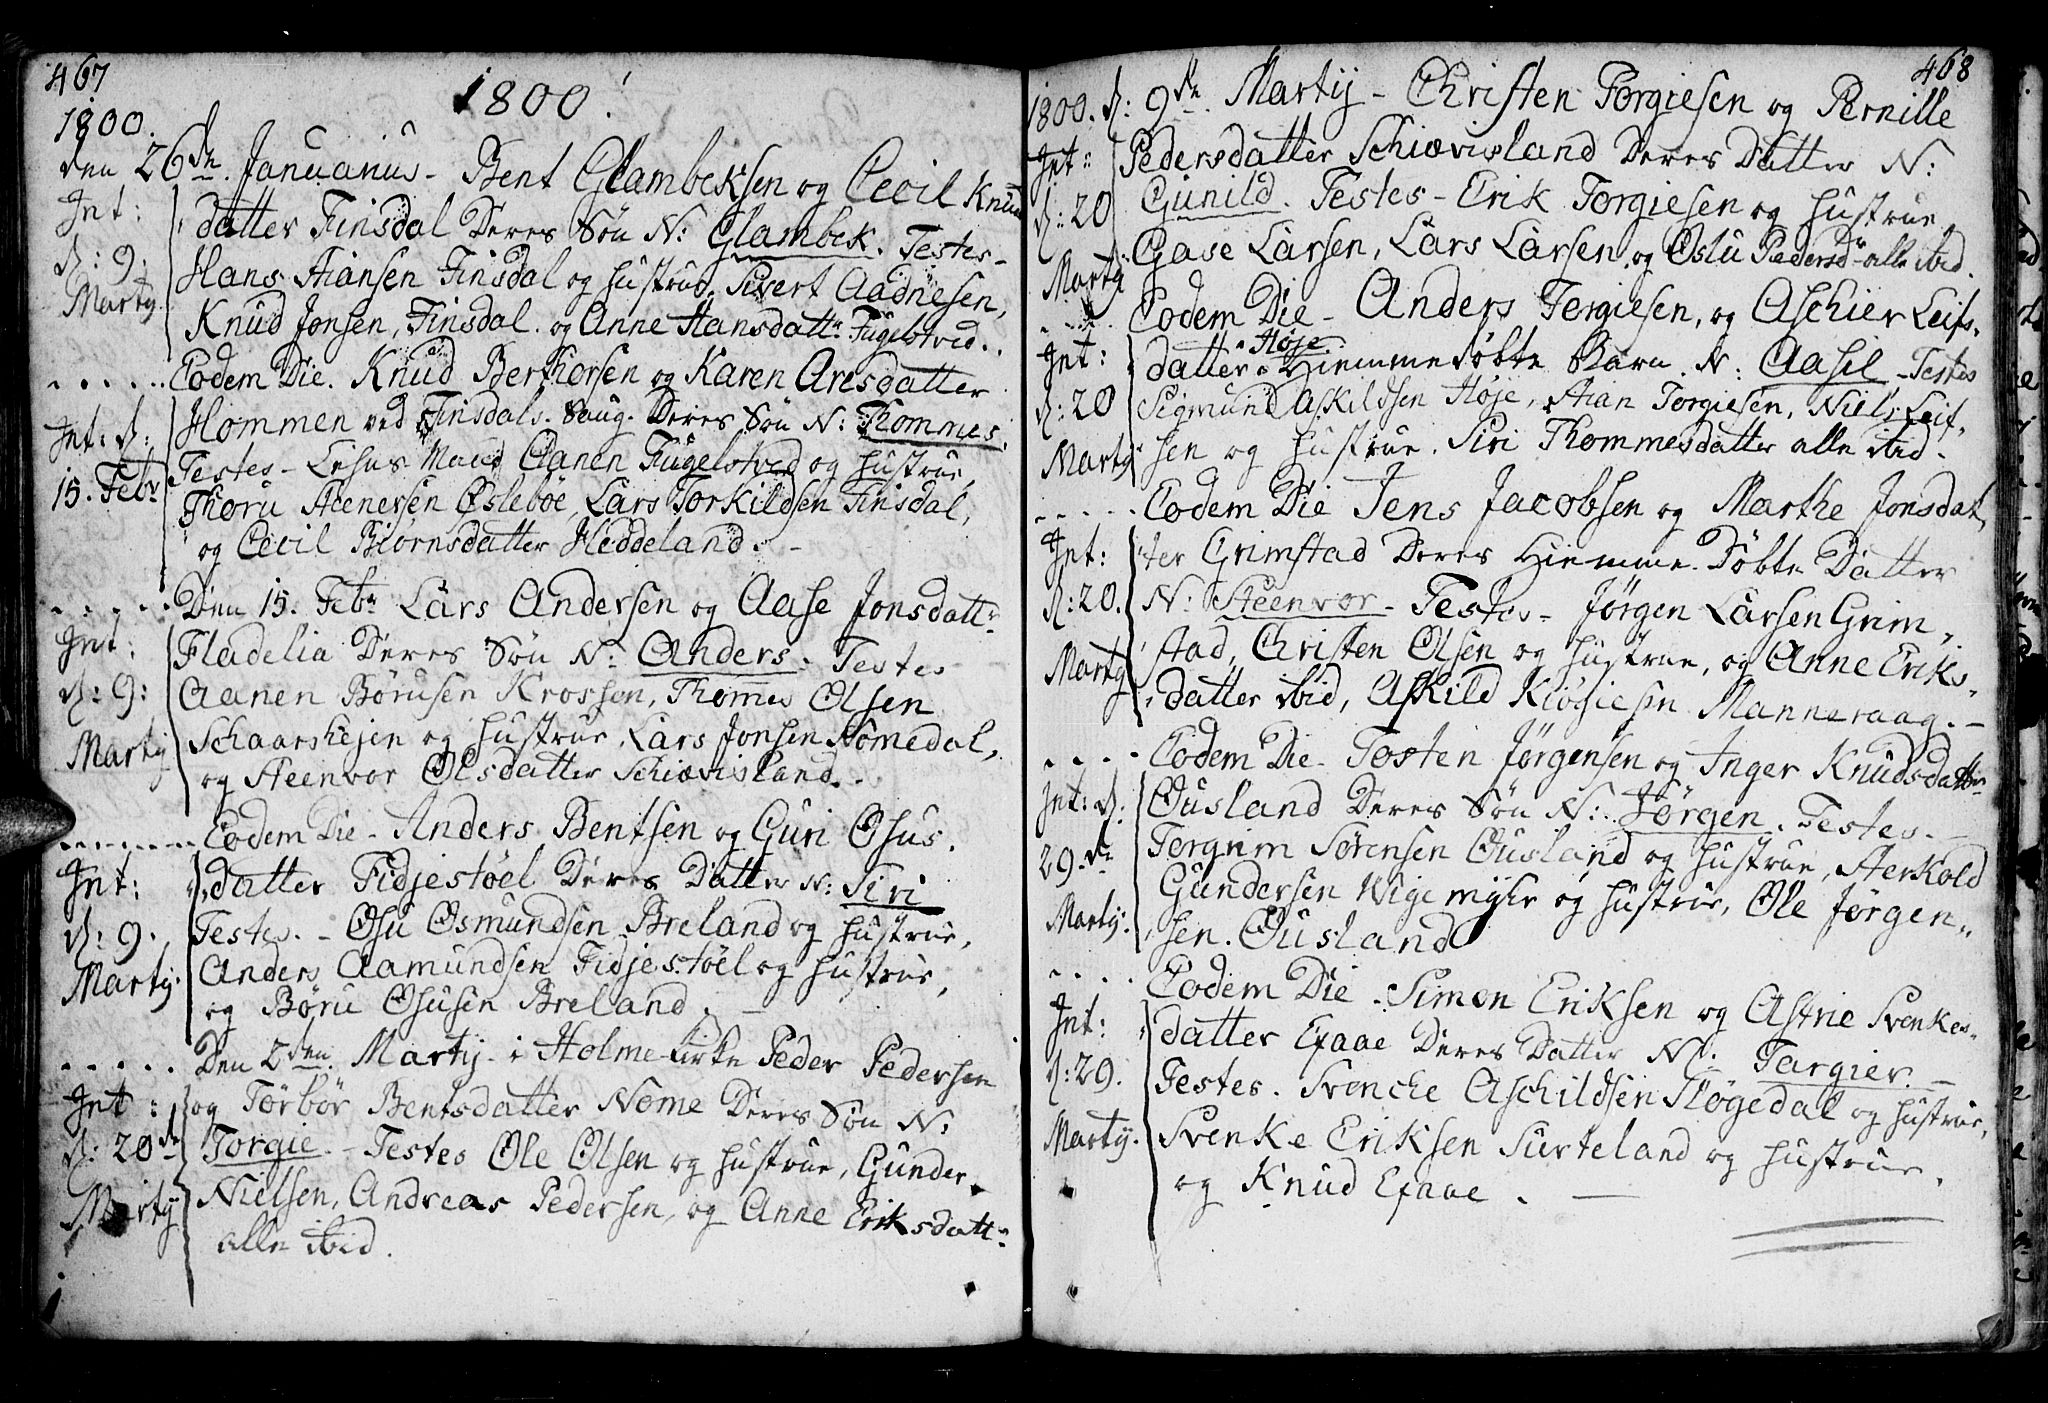 467
1800!
1800.
den 26de. Januarius - Bent Glambeksen og Cecil Knuds
Int:
datter Finsdal Deres Søn N: Glambek. Testes -
d: 9.
Hans Aiansen Finsdal og hustrue, Sivert Aadnesen,
Marty.
Knud Jonsen, Finsdal. og Anne Hansdattr Fugelstved.
Eodem Die. Knud Berthorsen og Karen Aresdatter
Int: d:
Hommen ved Finsdals. Saug. Deres Søn N: Thommes.
15. Febr
Testes - Aanen Fugelstved og hustrue,
Thoru Steenersen Øslebøe, Lars Torkildsen Finsdal,
og Cecil Biørnsdatter Heddeland. -
Den 15. Febr Lars Andersen og Aase Jonsdattr
Int:
Fladelia Deres Søn N: Anders. Testes -
d: 9:
Aanen Børusen Krossen, Thomes Olsen
Marty
Schaarshejen og hustrue, Lars Jonsen Nomedal,
og Steenvor Olsdatter Schiævisland.
Eodem Die - Anders Bentsen og Guri Osus.
Int:
datter Fidjestøel Deres Datter N: Siri
d: 9.
Testes. - Osu Osmundsen Breland og hustrue,
Marty.
Anders Aamundsen Fidjestøel og hustrue,
og Børu Osusen Breland. -
Den 2den. Marty - i Holme Kirke Peder Pedersen
Int:
og Torbør Bentsdatter Nome Deres Søn N:
d: 20de
Torgie. - Testes Ole Olsen og hustrue, Gunder
Marty
Nielsen, Andreas Pedersen, og Anne Eriksdattr
alle ibid.
468
1800. d: 9de. Marty - Christen Torgiesen og Pernille
Int:
Pedersdatter Schiævisland Deres Datter N:
d: 20
Gunild. Testes - Erik Torgiesen og hustrue
Marty
Gase Larsen, Lars Larsen, og Oslu Pedersdr alle ibid.
Eodem Die - Anders Torgiesen, og Aschier Leifs-
Int:
datter Høje Hiemmedøbte Barn. N: Aasil - Testes
d: 20
Sigmund Askildsen Høje, Aian Torgiesen, Niels Leif-
Marty
sen og hustrue. Siri Thommesdatter alle ibid.
Eodem Die Jens Jacobsen og Marthe Jonsdat,
Int:
ter Grimstad Deres Hiemme. Døbte Datter
d: 20.
N: Steenvor - Testes - Jørgen Larsen Grim,
Marty
stad, Christen Olsen og hustrue, og Anne Eriks.
datter ibid, Askild Kiøgiesen Manneraag. -
Eodem Die - Tosten Jørgensen og Inger Knudsdatter
Int: d:
Øusland Deres Søn N: Jørgen. Testes. -
29.de
Torgrim Sørensen Øusland og hustrue, Sterkold
Marty.
Gundersen Wigemyhr og hustrue, Ole Jørgen,,
sen. Øusland
Eodem Die. Simon Eriksen og Astrie Svenkes-
Int:
datter Efaae Deres Datter N: Targier. -
d: 29.
Testes. Svenche Aschildsen Fløgedal og hustrue,
Marty.
Svenke Eriksen Surteland og hustrue.
og Knud Efaae.